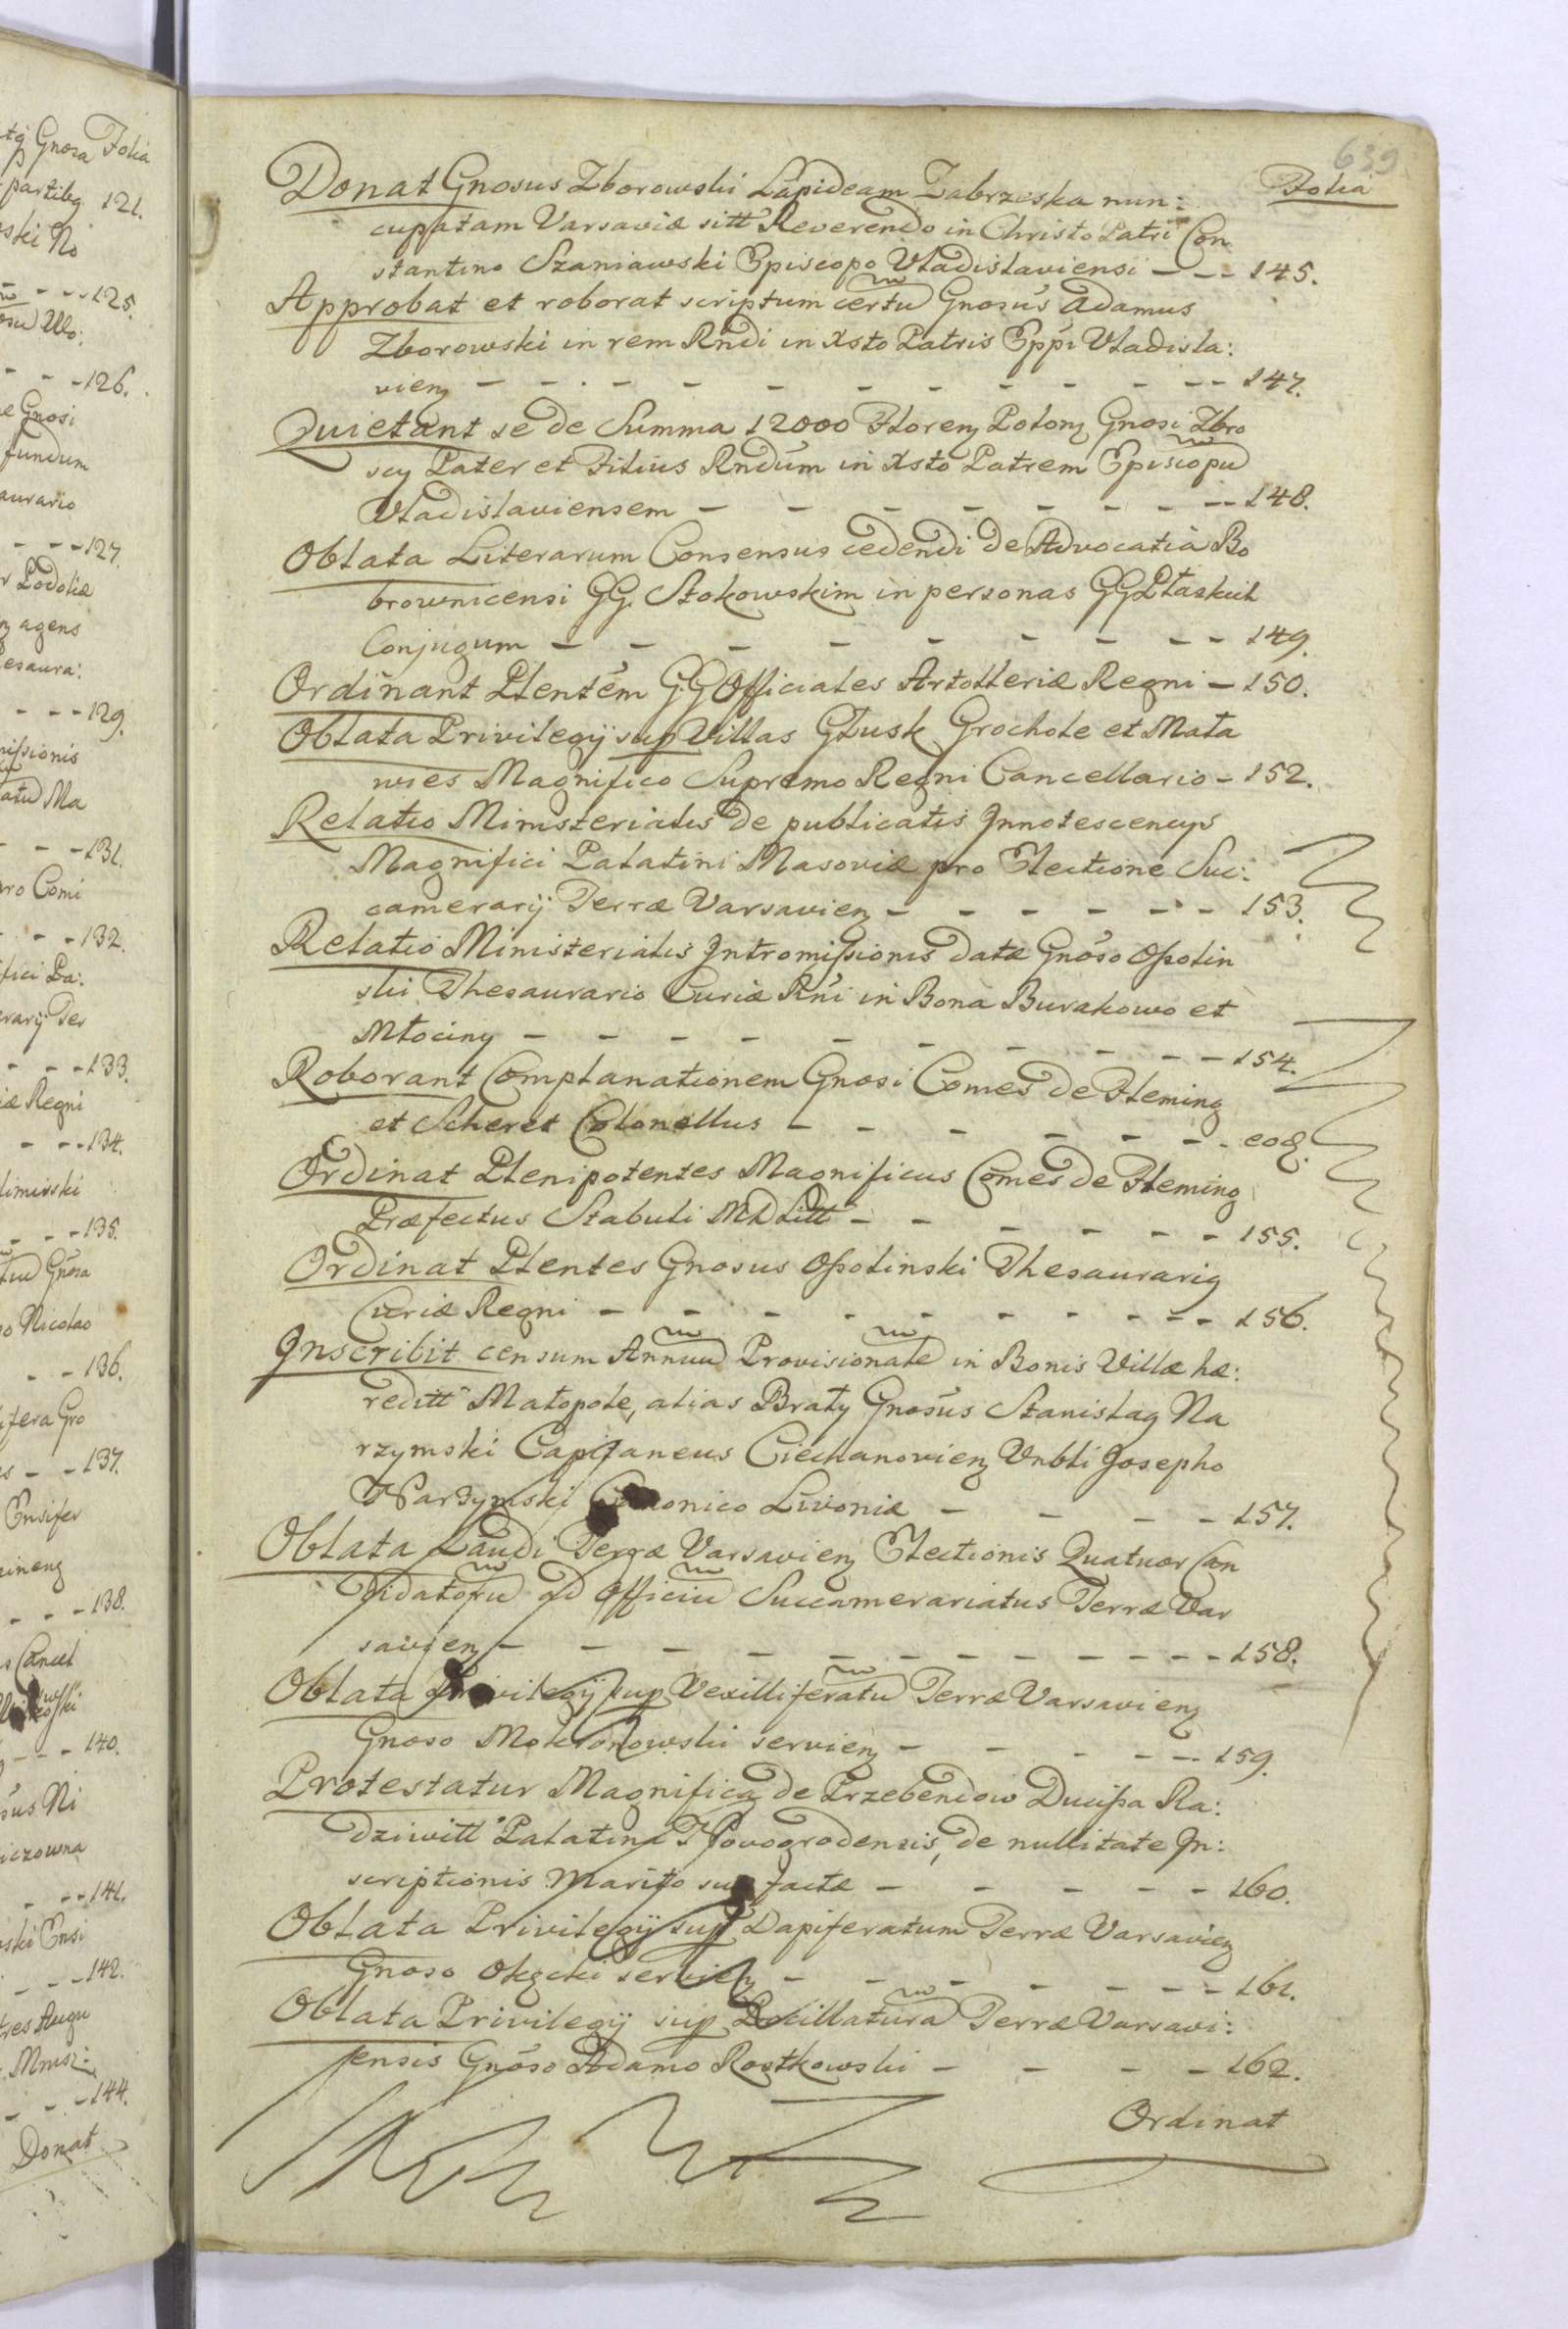 639
Folia
Donat Gnosus Zborowski Lapideam Zabrzeska nun:
cupatam Varsaviæ sitt Reverendo in Christo Patri Con
stantino Szaniawski Episcopo Vladislaviensi - - - 145.
Approbat et roborat scriptum certu Gnosus Adamus
Zborowski in rem Rndi in Xsto Patris Eppi Vladisla:
vien - - - - - - - - - - - 147.
Quietant se de Summa 12000 Floren Polon Gnosi Zbro
scy Pater et Filius Rndum in Xsto Patrem Episcopu
Vladislaviensem - - - - - - - - 148.
Oblata Literarum Consensus cedendi de Advocatia Bo
brownicensi GG. Stokowskim in personas GG Płaskich
Conjugum - - - - - - - - - 149.
Ordinant Plentem GG Officiales Artolleriæ Regni - 150.
Oblata Privilegij sup Villas Głusk Grochole et Mała
wies Magnifico Supremo Regni Cancellario - 152.
Relatio Ministerialis de publicatis Innotescencys
Magnifici Palatini Masoviæ pro Electione Suc:
camerarij Terræ Varsavien - - - - - - 153.
Relatio Ministerialis Intromissionis datæ Gnoso Ossolin
ski Thesaurario Curiæ Rni in Bona Burakowo et
Młociny - - - - - - - - - - 154.
Roborant Complanationem Gnosi Comes de Fleming
et Scheret Colonellus - - - - - - - eod.
Ordinat Plenipotentes Magnificus Comes de Fleming
Præfectus Stabuli MD Litt - - - - - - 155.
Ordinat Plentes Gnosus Ossolinski Thesaurarig
Curiæ Regni - - - - - - - - - - 156.
Inscribit censum Annuu Provisionale in Bonis Villæ hæ:
reditt Małopole, alias Braty Gnosus Stanislag Na
rzymski Capitaneus Ciechanovien Vnbli Josepho
Narzymski Canonico Livoniæ - - - - 157.
Oblata Laudi Terræ Varsavien Electionis Quatuor Can
didatoru ad Officiu Succamerariatus Terræ Var
savien - - - - - - - - - - 158.
Oblata Privilegij sup Vexilliferatu Terræ Varsavien
Gnoso Mokronowski servien - - - - - 159.
Protestatur Magnifica de Przebendow Ducissa Ra:
dziwitt Palatina Novogrodensis, de nullitate In:
scriptionis Marito suo factæ - - - - - 160.
Oblata Privilegij sup Dapiferatum Terræ Varsavien
Gnoso Okęcki servien - - - - - - - 161.
Oblata Privilegij sup Pocillatura Terræ Varsavi:
ensis Gnoso Adamo Rostkowski - - - - 162.
Ordinat